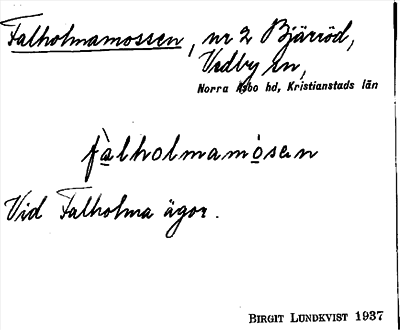 Falholmamossen, nr 2 Bjärröd,
Vedby sn,
Norra Åsbo hd, Kristianstads län
fàlholmamósen
Vid Falholma ägor.
BIRGIT LUNDKVIST 1937